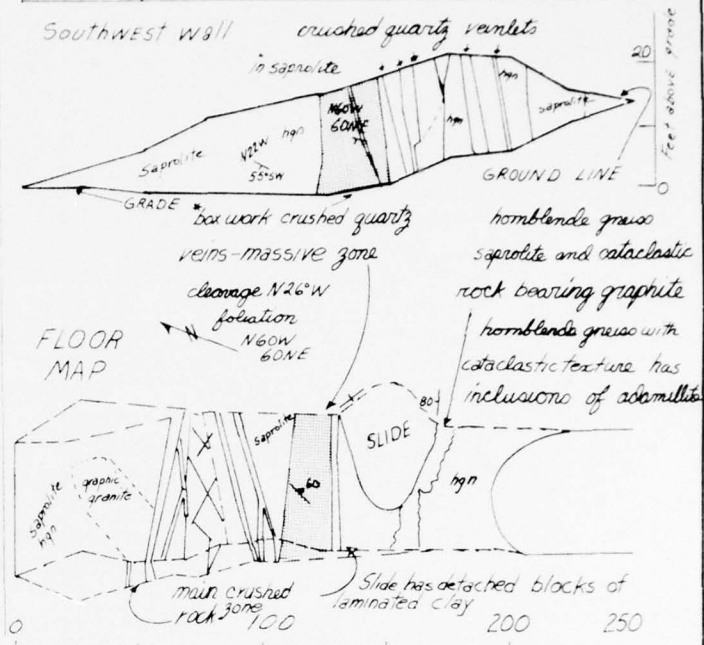 Southwest Wall
crushed quartz veinlets
in saprolite
20
hgn
N60W
60NE
hgn
hgn
saprolite
Saprolite
N22W
55°SW
Feet above grade
GROUND LINE
0
GRADE
*boxwork crushed quartz
veins-massive zone
cleavage N26°W
foliation
N60W
60NE
N
hornblende gneiss
saprolite and cataclastic
rock bearing graphite
hornblende gneiss with
cataclastic texture has
inclusions of adamillite
FLOOR
MAP
80
saprolite
SLIDE
graphic
granite
60
hgn
saprolite
hgn
main crushed
rock zone
Slide has detached blocks of
laminated clay
0
100
200
250